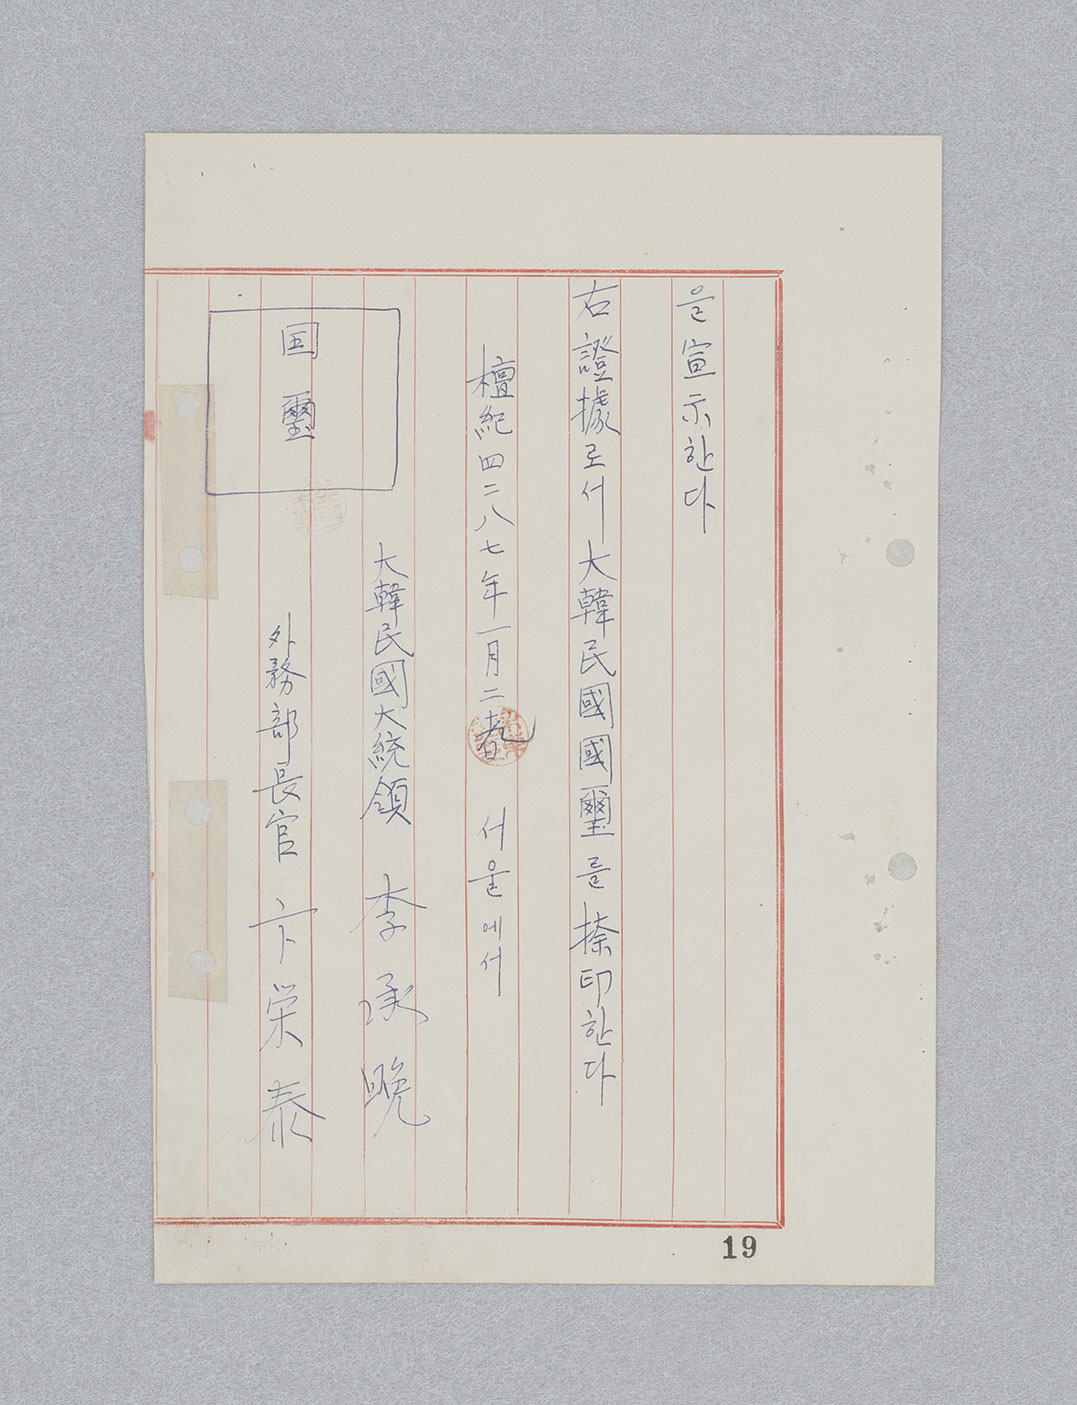 을 宣示한다
右證據로서 大韓民國國璽를 捺印한다
檀紀四二八七年一月二 서울에서
大韓民國大統領 李承晩
外務部長官 卞栄泰
国璽
19